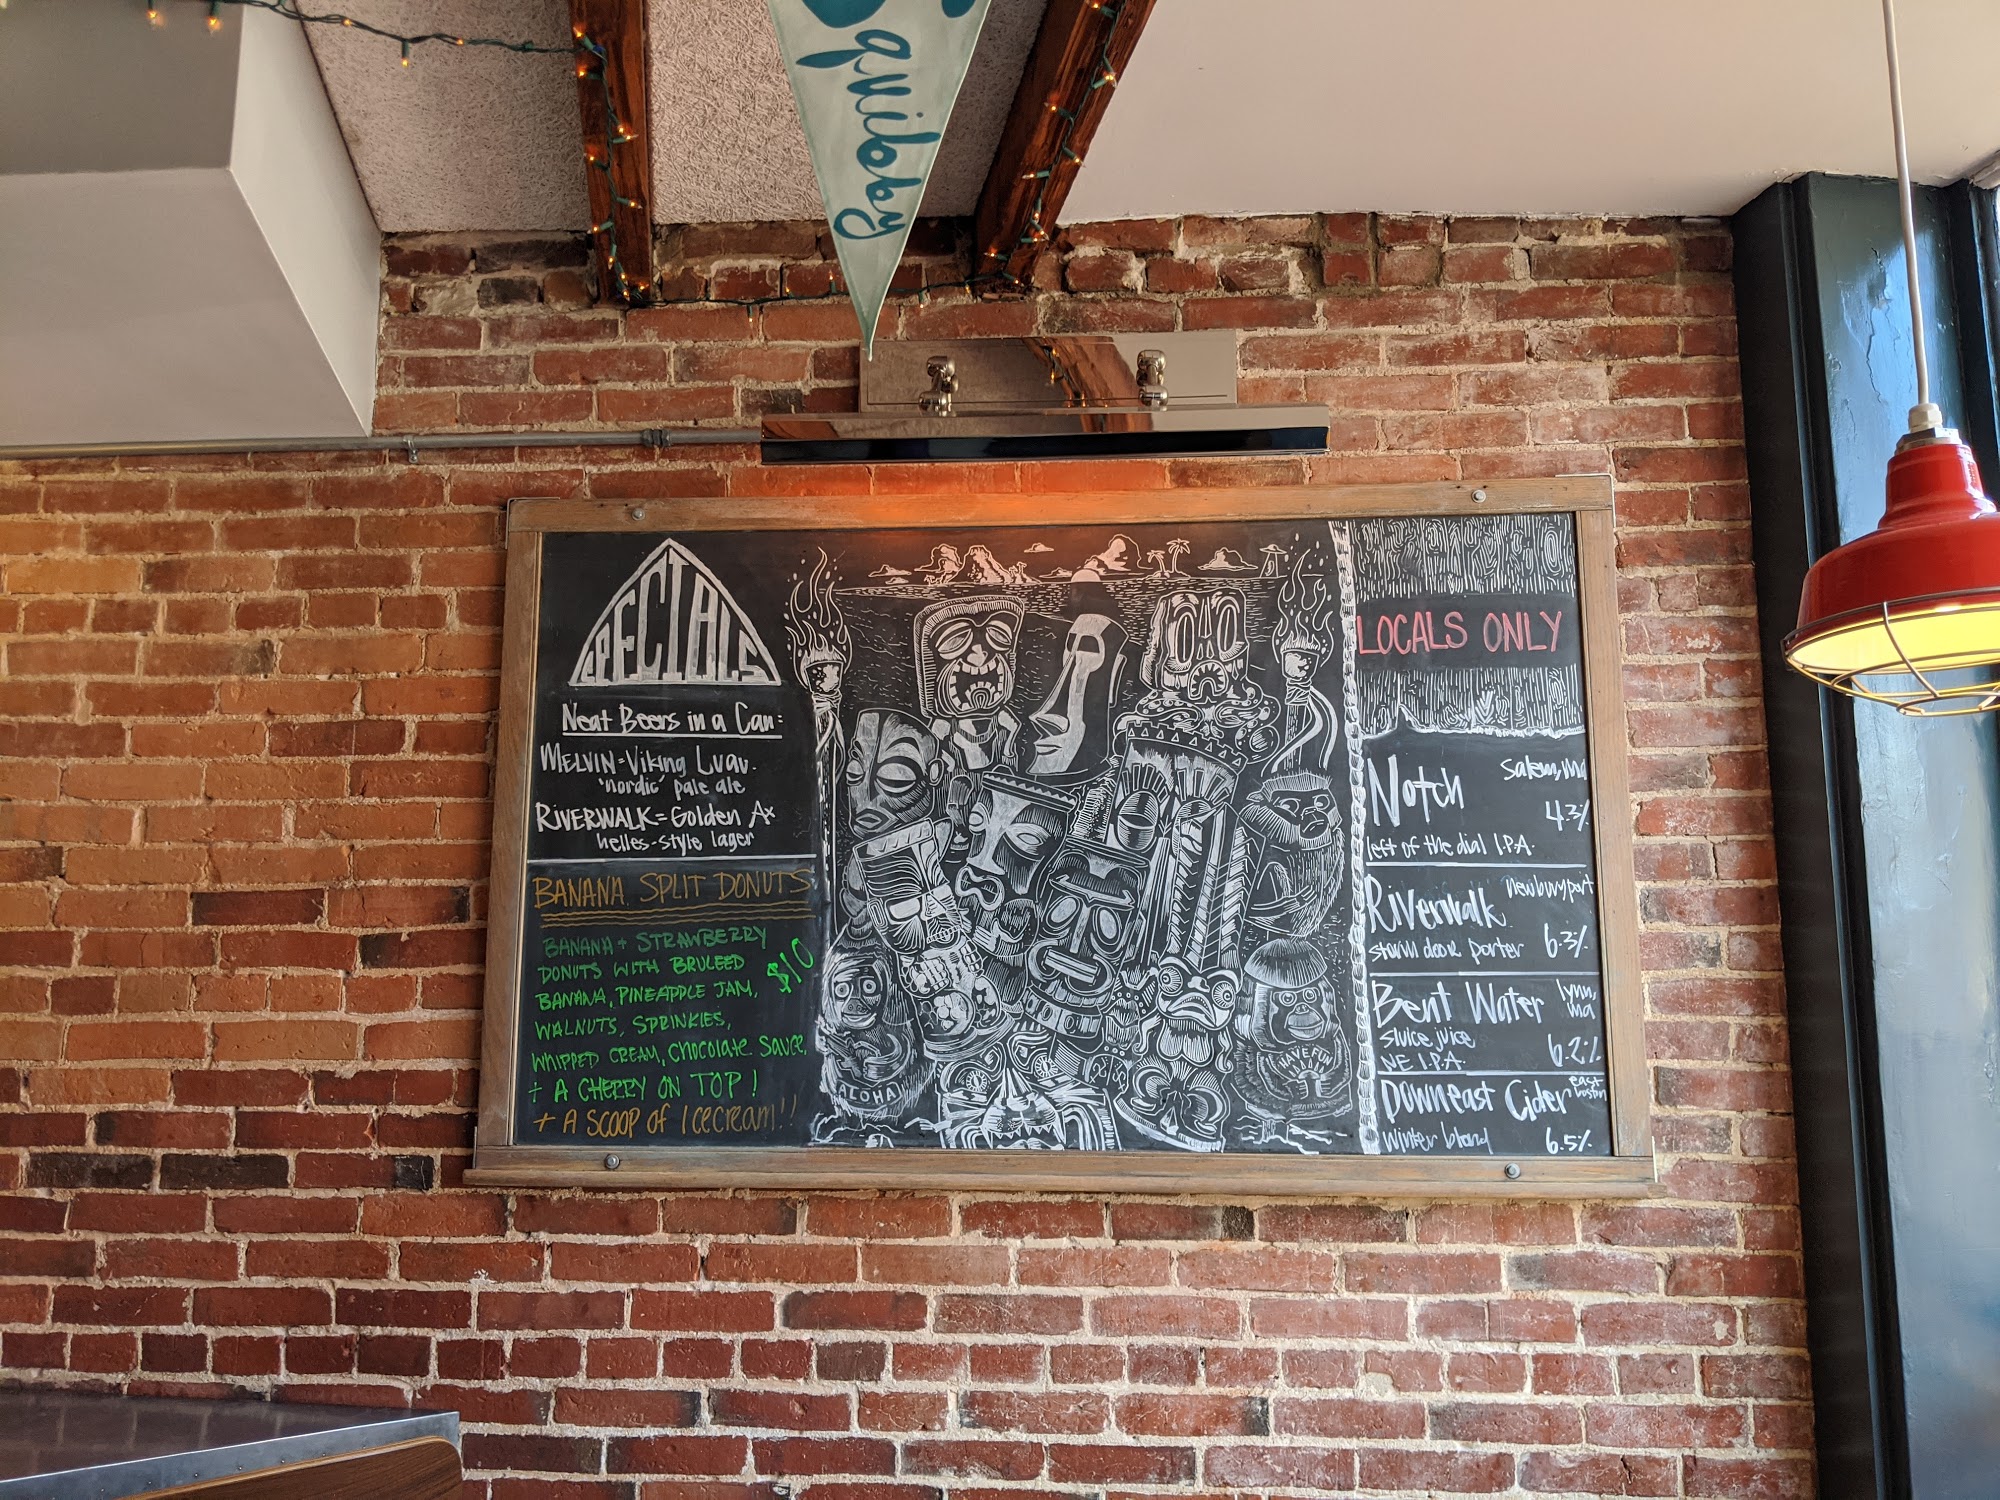 Squilby
SPECIALS
Neat Beers in a Can:
MELVIN = Viking Luau.
'nordic' pale ale
RIVERWALK = Golden Ax
helles-style lager
BANANA SPLIT DONUTS
BANANA + STRAWBERRY
DONUTS WITH BRULEED
BANANA, PINEAPPLE JAM,
WALNUTS, SPRINKLES,
WHIPPED CREAM, CHOCOLATE SAUCE,
+ A CHERRY ON TOP!
$10
+ A SCOOP OF ICECREAM!!
ALOHA
HAVE FUN
LOCALS ONLY
Notch
Salem, Ma
4.3%
left of the dial I.P.A.
Riverwalk
newburyport
storm door porter
6.3%
Bent Water
lynn,
ma
sluice juice
NE I.P.A.
6.2%
Downeast Cider
east
boston
winter blend
6.5%